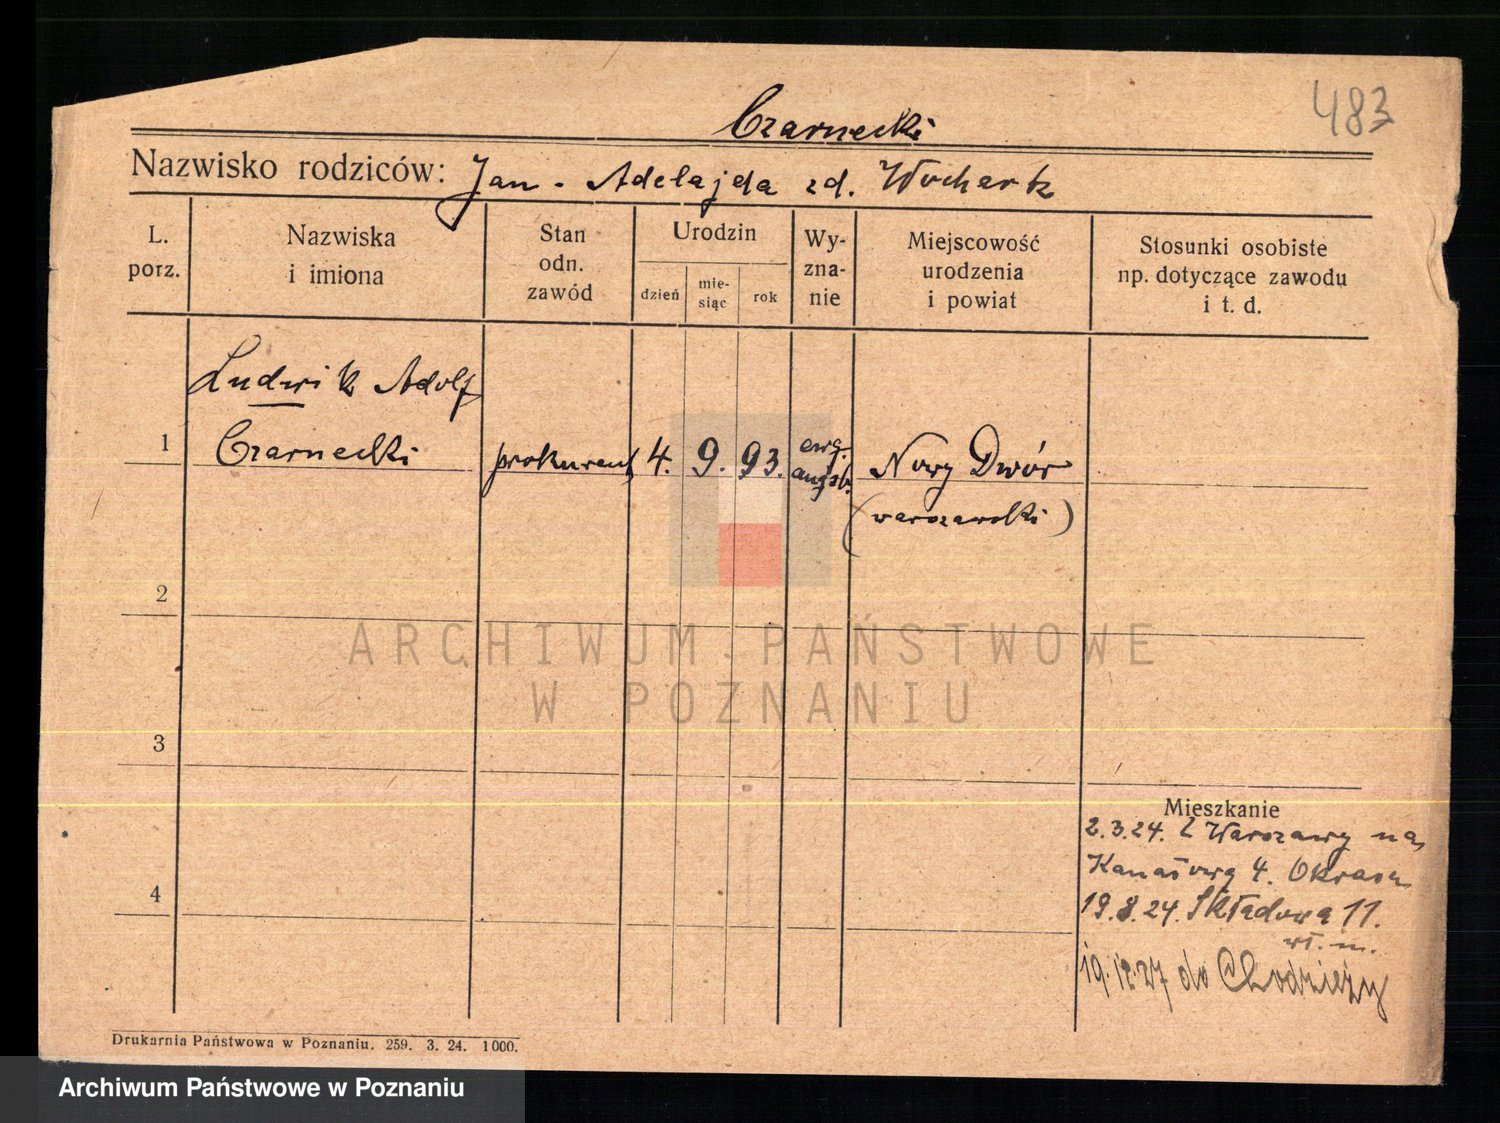 483
Czarnecki
Nazwisko rodziców: Jan - Adelajda zd.
L. porz.
Nazwiska i imiona
Stan odn. zawód
Urodzin
dzień
mie-siąc
rok
Wy-zna-nie
Miejscowość urodzenia i powiat
Stosunki osobiste np. dotyczące zawodu i t. d.
Ludwik Adolf
1 Czarnecki prokurent 4. 9. 93. ewg. augsb. Nowy Dwór
(warszawski)
2
3
4
Mieszkanie
2.3.24. z Warszawy na
Kanałową 4.
19.8.24. Składowa 11.
wł. m.
19.12.27 do Chodzieży
Drukarnia Państwowa w Poznaniu. 259. 3. 24. 1000.
ARCHIWUM PAŃSTWOWE
W POZNANIU
Archiwum Państwowe w Poznaniu